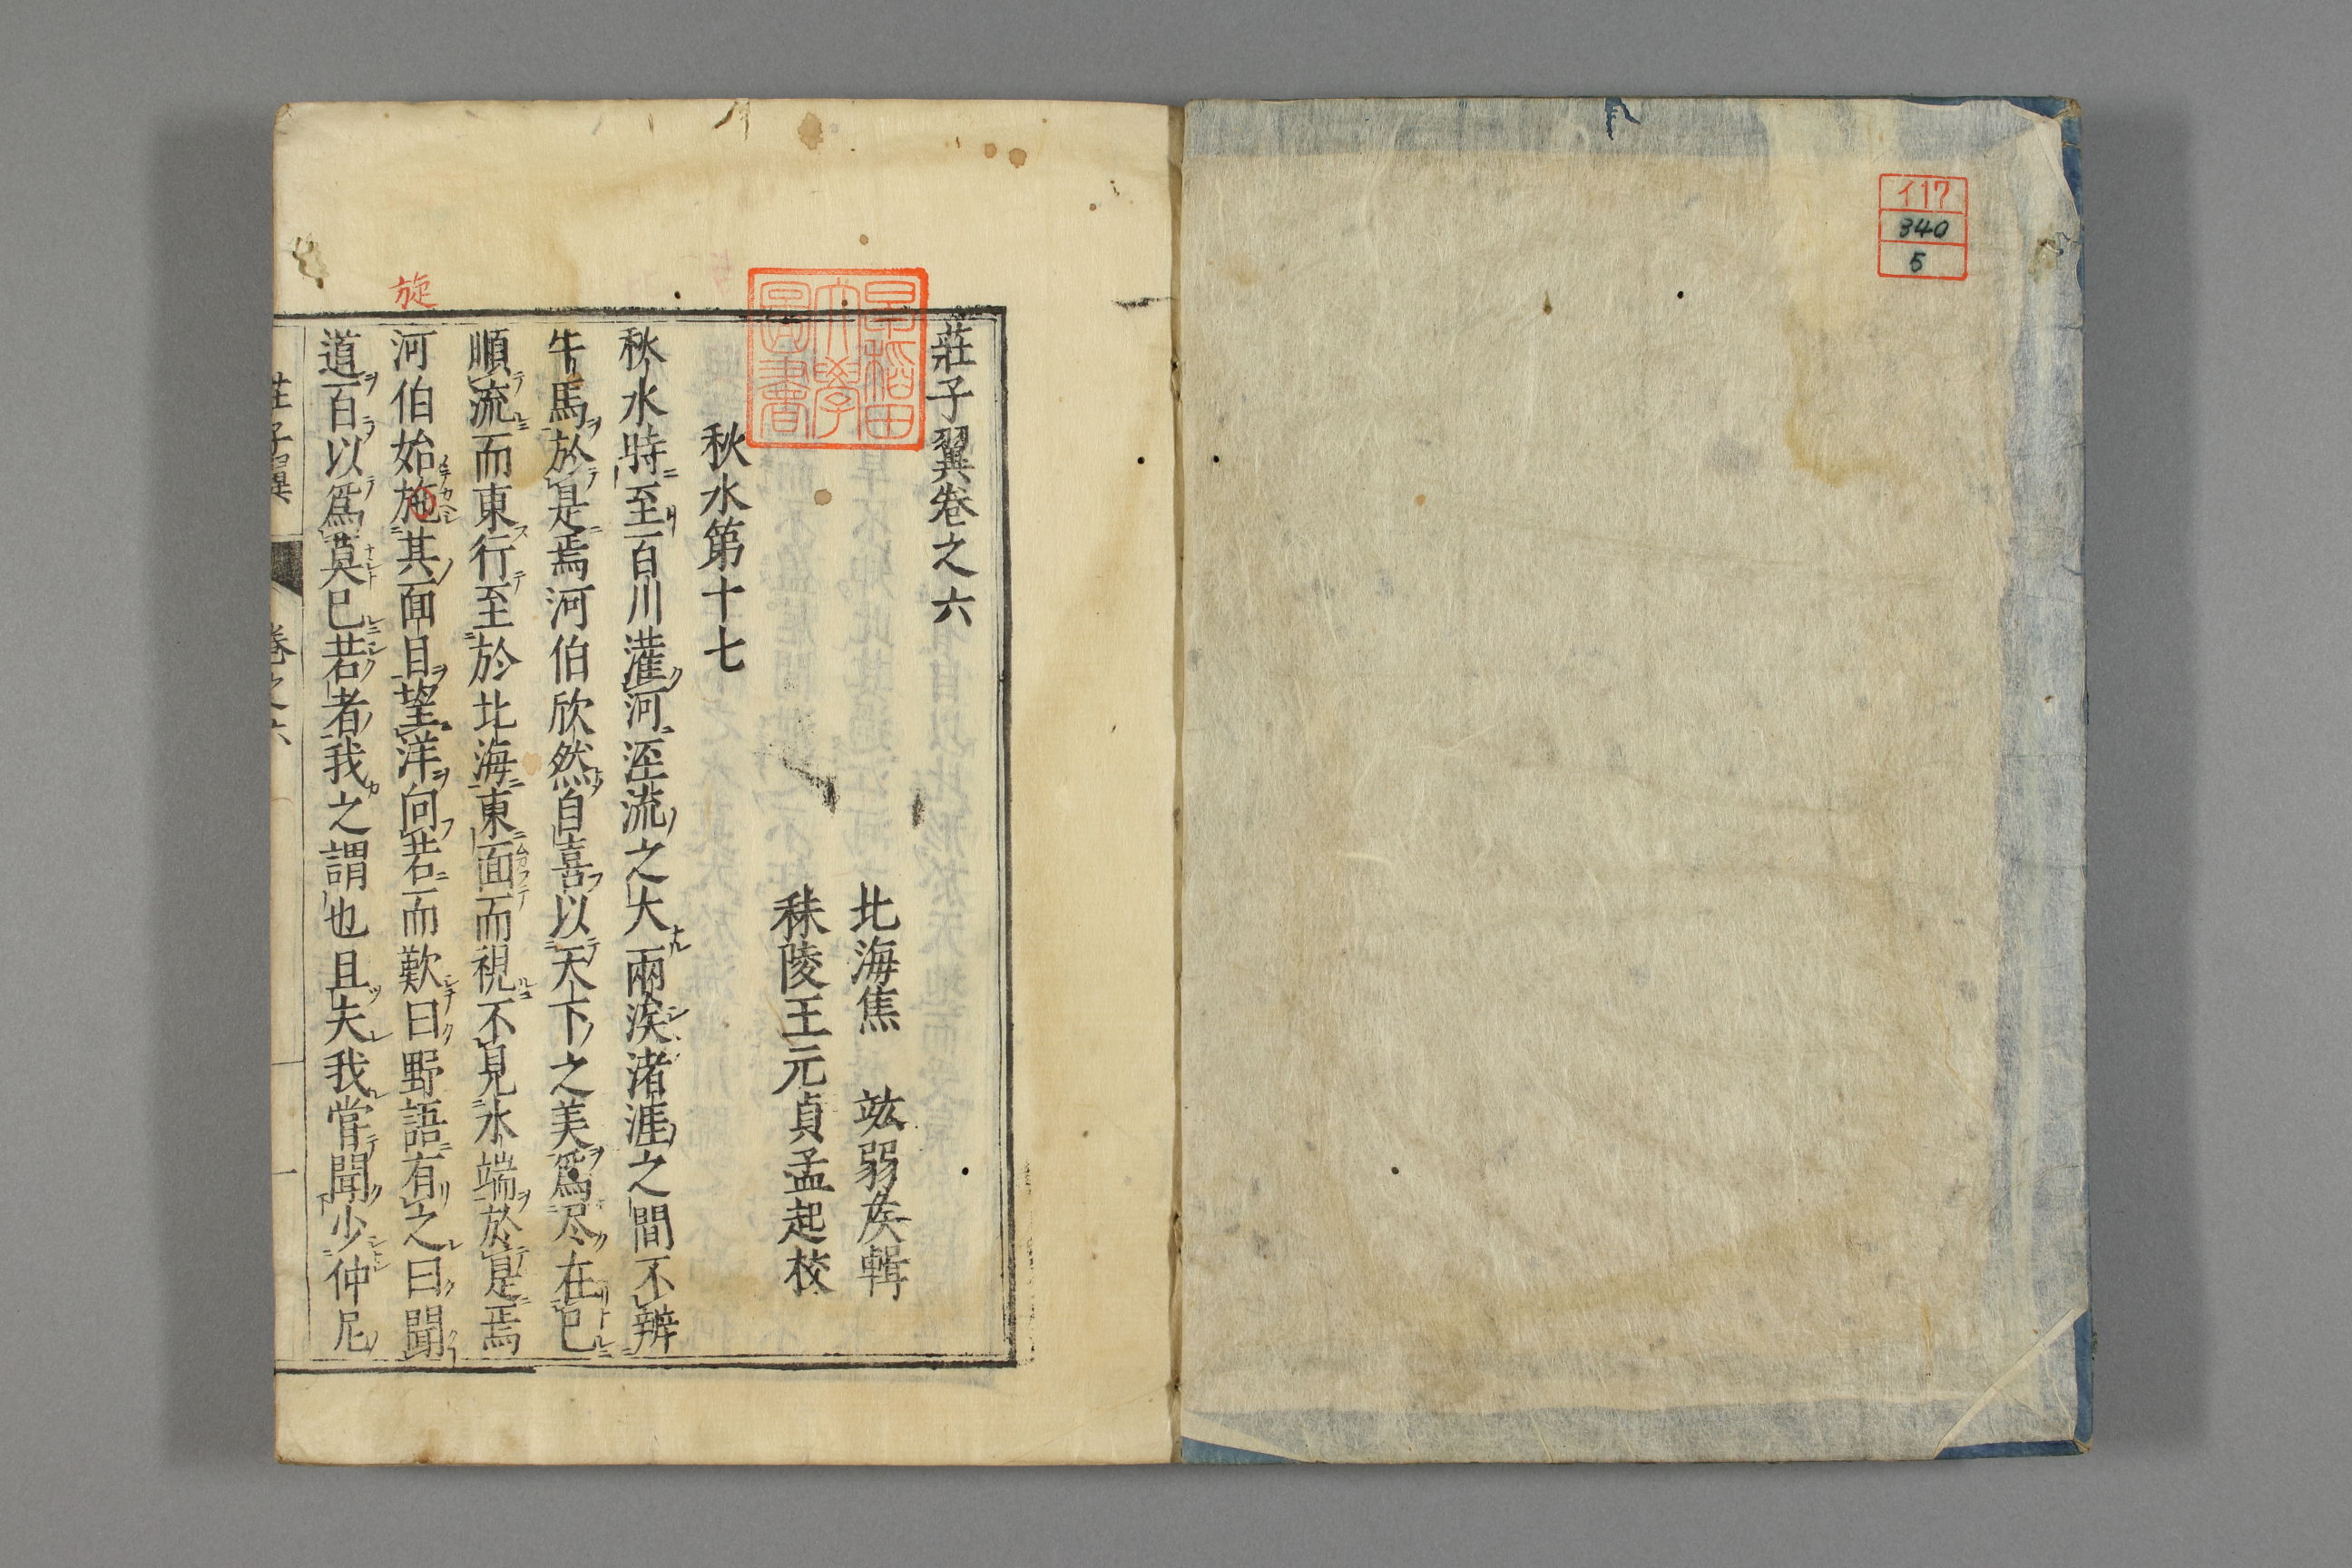 イ17
340
5
莊子翼卷之六
北海焦　竑弱侯輯
秣陵王元貞孟起校
早稻田大學圖書
秋水第十七
秋水時至百川灌河涇流之大兩涘渚涯之間不辨
牛馬於是焉河伯欣然自喜以天下之美爲尽在已
順流而東行至於北海東面而視不見水端於是焉
旋
河伯始施其面目望洋向若而歎曰野語有之曰聞
道百以爲莫已若者我之謂也且夫我嘗聞少仲尼
莊子翼　卷之六　一